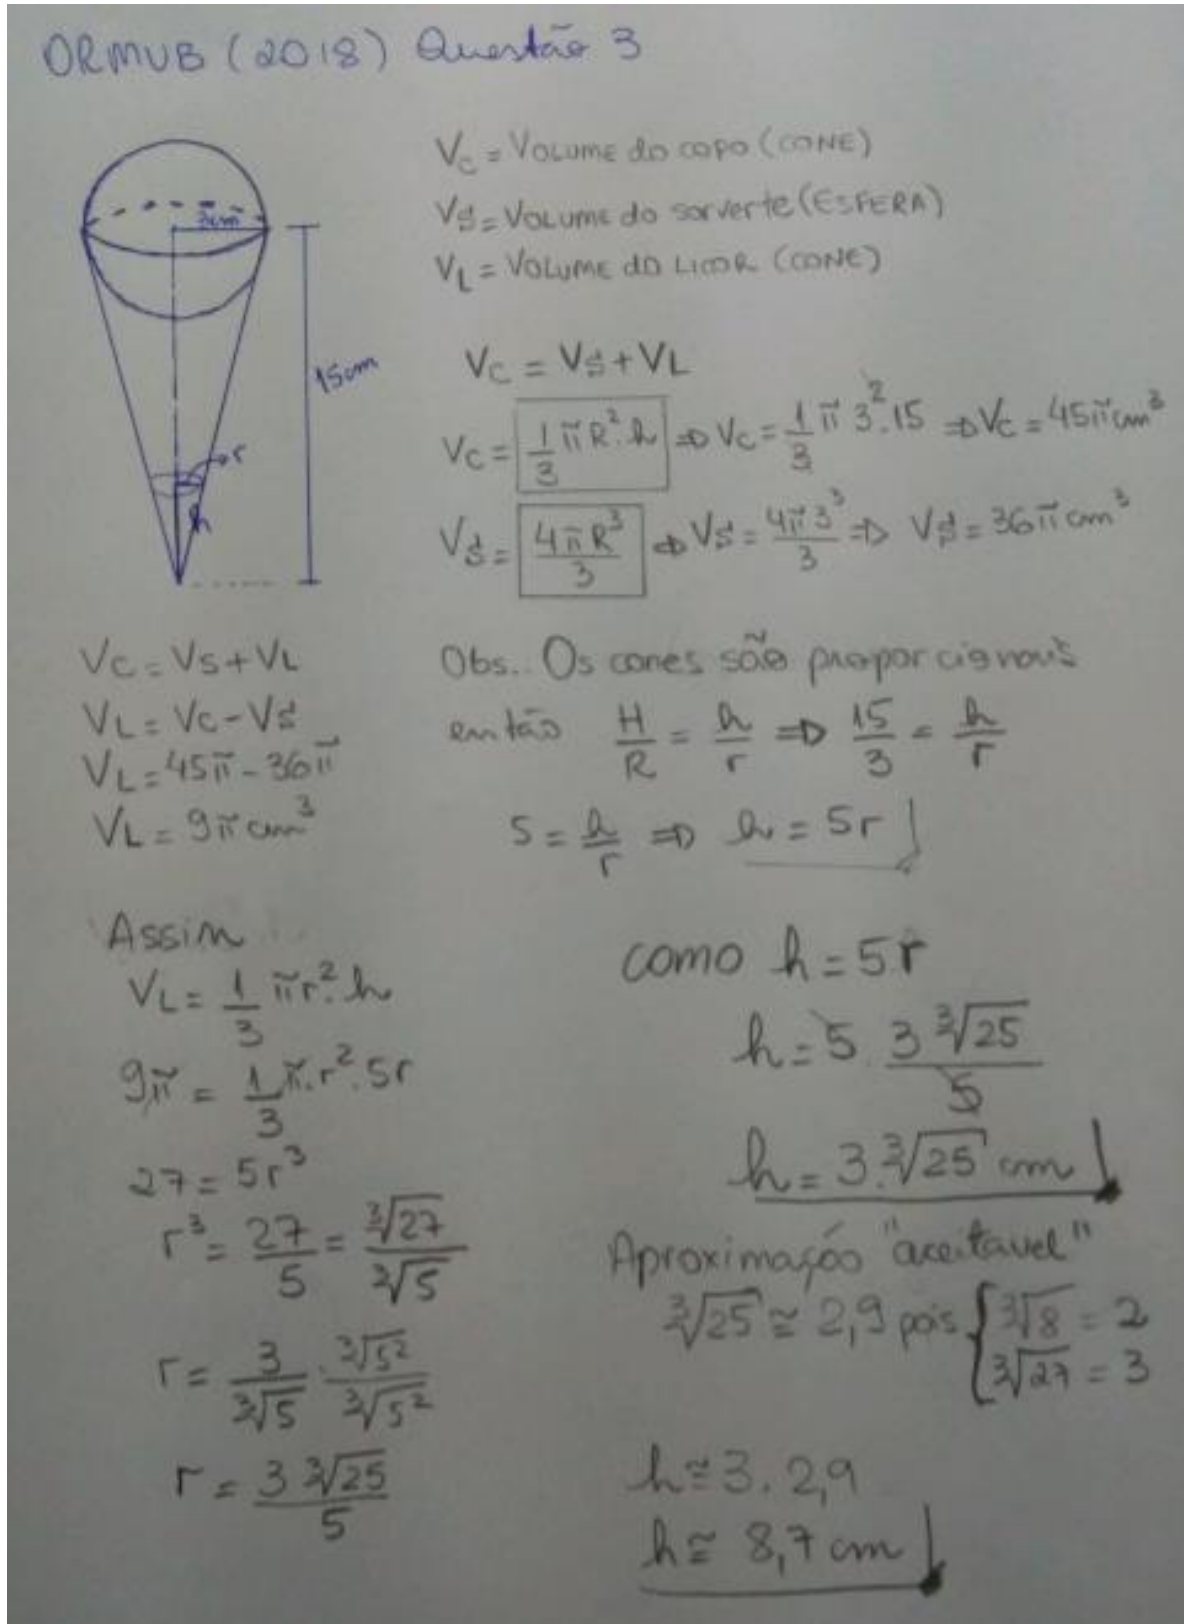 ORMUB (2018) Questão 3
3cm
15cm
r
h
Vc = Volume do copo (CONE)
Vs = Volume do sorverte (ESFERA)
VL = Volume do Licor (CONE)
Vc = Vs + VL
Vc = 1/3 π R². h => Vc = 1/3 π 3².15 => Vc = 45π cm³
Vs = 4πR³/3 => Vs = 4π3³/3 => Vs = 36π cm³
Vc = Vs + VL
VL = Vc - Vs
VL = 45π - 36π
VL = 9π cm³
Obs.. Os cones são proporcionais
então H/R = h/r => 15/3 = h/r
5 = h/r => h = 5r
Assim
VL = 1/3 πr².h
9π = 1/3 π.r².5r
27 = 5r³
r³ = 27/5 = ∛27/∛5
r = 3/∛5 . ∛5²/∛5²
r = 3∛25/5
como h = 5r
h = 5. 3∛25/5
h = 3.∛25 cm
Aproximação "aceitavel"
∛25 ≅ 2,9 pois { ∛8 = 2
∛27 = 3
h ≅ 3. 2,9
h ≅ 8,7 cm